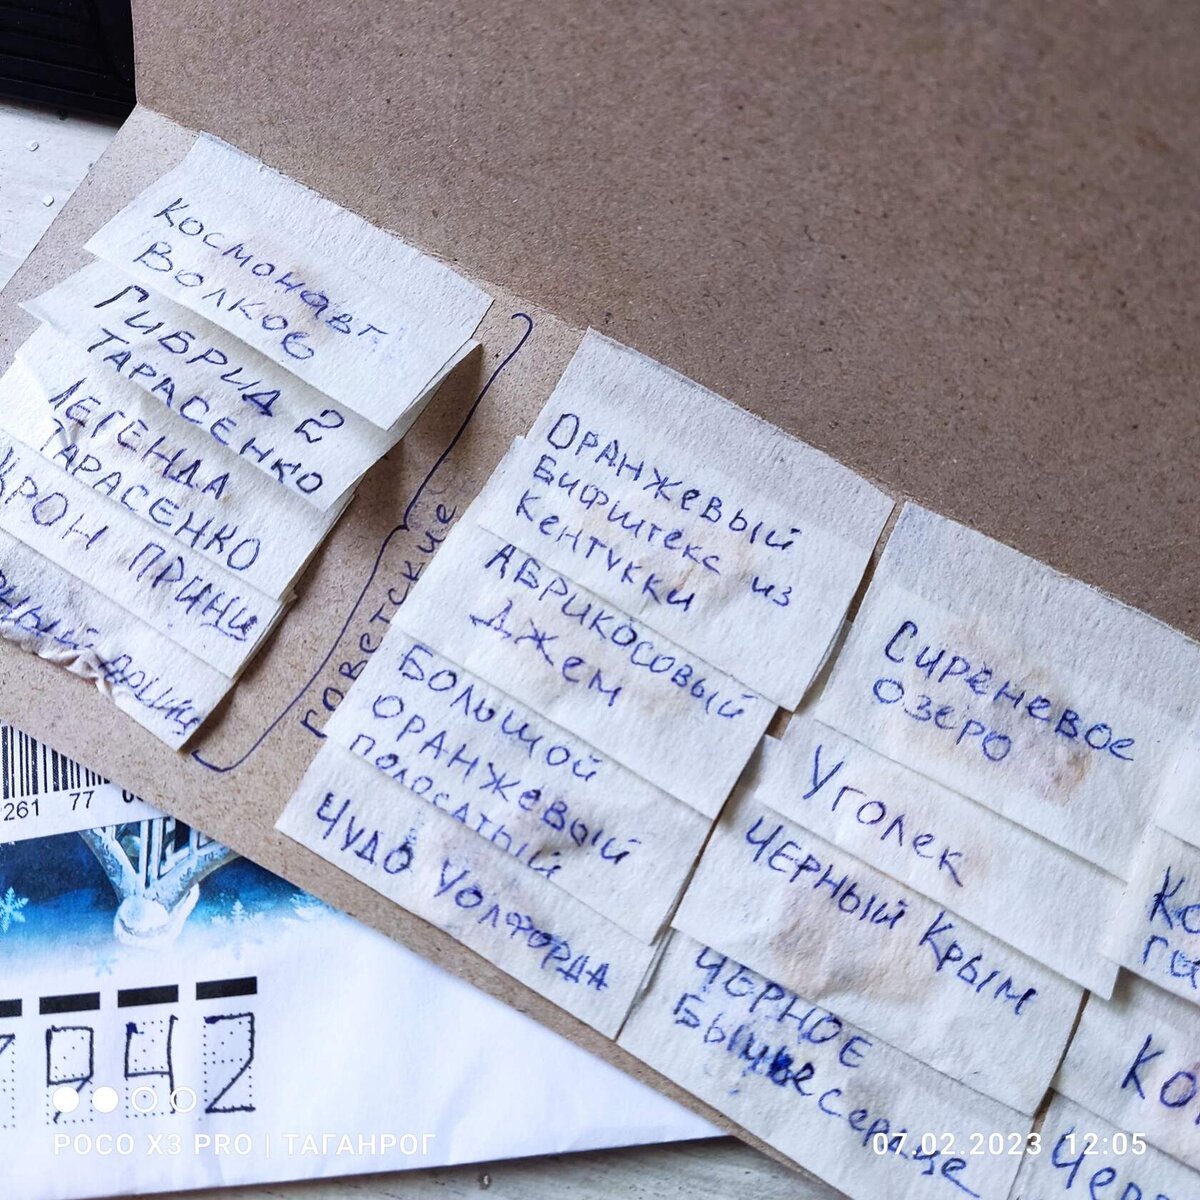 Космонавт
Волков
Гибрид 2
ТАРАСЕНКО
ЛЕГЕНДА
ТАРАСЕНКО
КРОН ПРИНЦ
советские
ОРАНЖЕВЫЙ
Бифштекс из
Кентукки
АБРИКОСОВЫЙ
Джем
БОЛЬШОЙ
ОРАНЖЕВЫЙ
полосатый
ЧУДО УОЛФОРДА
Сиреневое
ОЗЕРО
Уголек
ЧЕРНЫЙ Крым
ЧЕРНОЕ
Бычье сердце
261 77
942
POCO X3 PRO | ТАГАНРОГ
07.02.2023 12:05